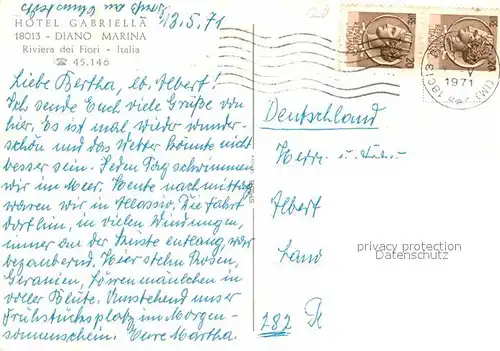 HOTEL GABRIELLA
18013 - DIANO MARINA
Riviera dei Fiori - Italia
☎ 45.146
13.5.71
Liebe Bertha, lb. Albert!
Ich sende Euch viele Grüße von
hier. Es ist mal wieder wunder-
schön und das Wetter könnte nicht
besser sein. Jeden Tag schwimmen
wir im Meer. Heute nachmittag
waren wir in Alassio. Die Fahrt
dorthin, in vielen Windungen,
immer an der Küste entlang, war
bezaubernd. Hier stehn Rosen,
Geranien, Löwenmäulchen in
voller Blüte. Umstehend unser
Frühstücksplatz im Morgen-
sonnenschein. Eure Martha.
1971
18013
Deutschland
Herrn u. Frau
Albert
282
privacy protection
Datenschutz